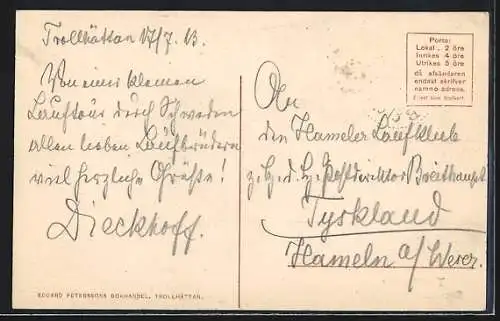 Trollhättan 17/7. 13.
Von einer kleinen
Lauftour durch Schweden
allen lieben Laufbrüdern
viel herzliche Grüße!
Dieckhoff.
EDUARD PETERSSONS BOKHANDEL, TROLLHÄTTAN.
Porto:
Lokal.. 2 öre
Inrikes 4 öre
Utrikes 5 öre
då afsändaren
endast skrifver
namn o. adress.
An
den Hameler Laufklub
z. H. d. H. Postdirektor Breithaupt
Tyskland
Hameln a/Weser.